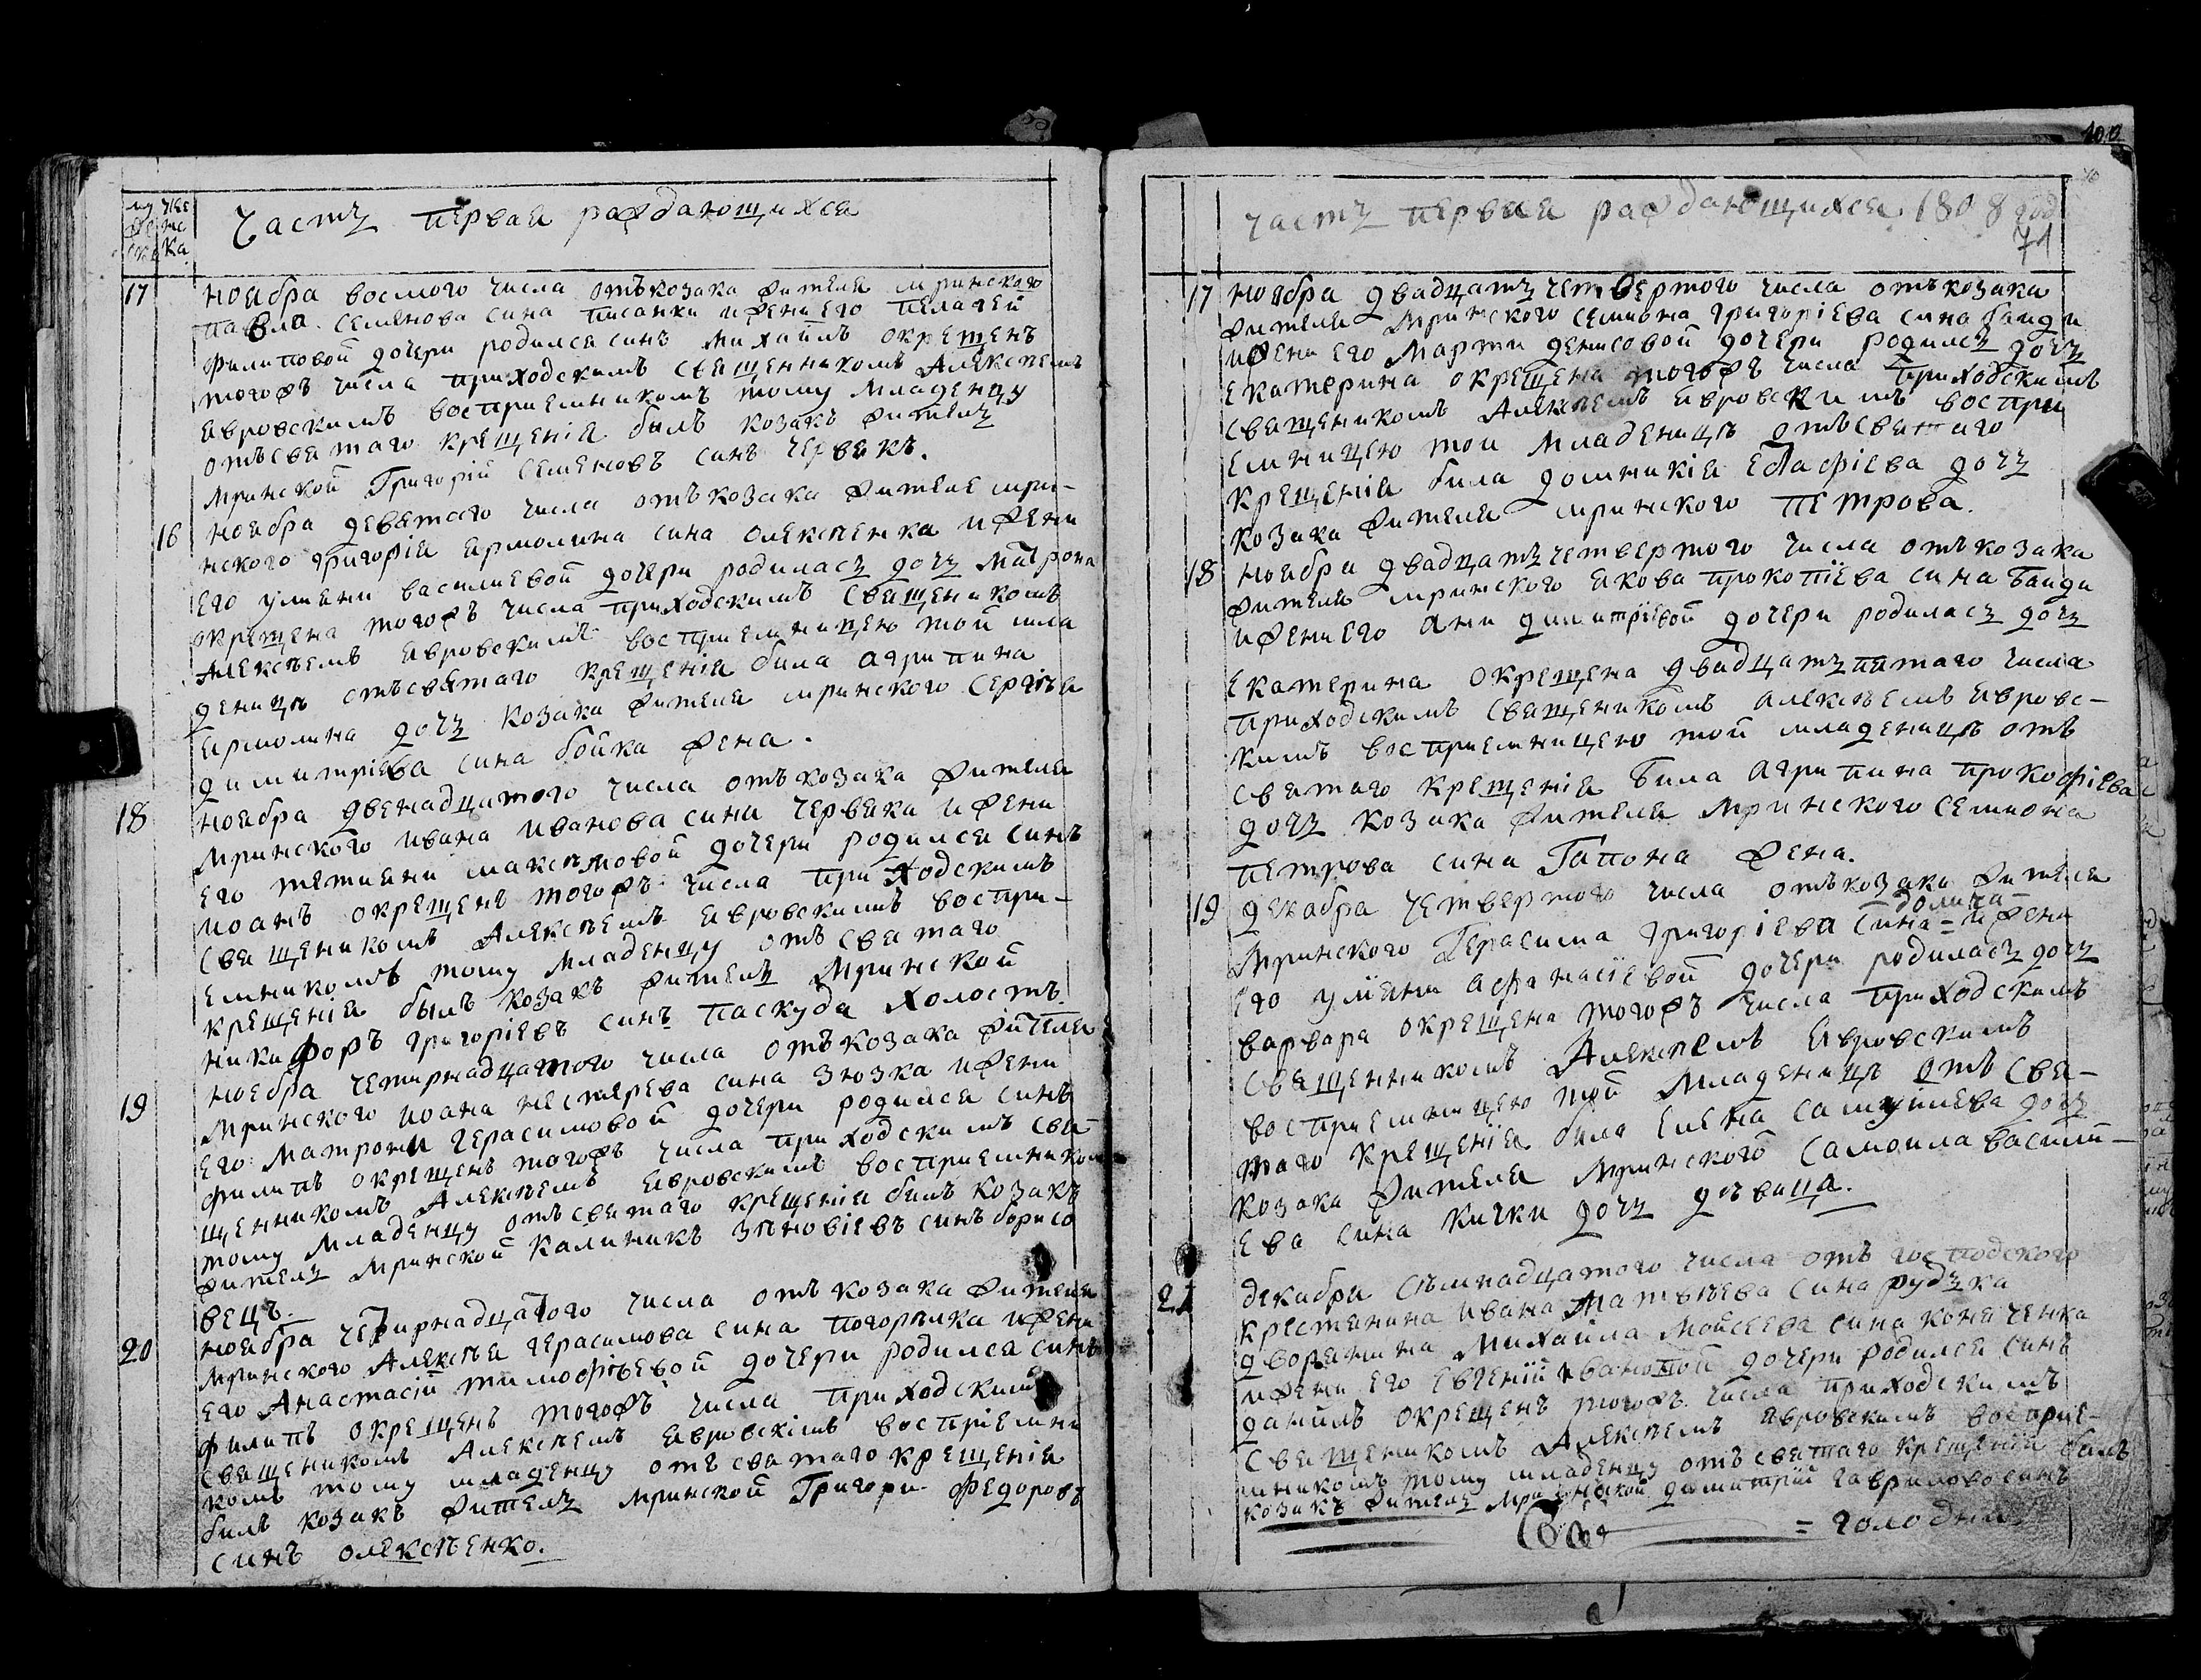 му
жеска
женска
Часть первая раждающихся
17
ноября восмого числа отъ козака жителя мринского
павла семенова сина писанки и жени его пелагеи
филиповой дочери родился синъ михаилъ окрещенъ
тогожъ числа приходскимъ священникомъ Алексѣемъ
явровскимъ восприемникомъ тому младенцу
отъ святаго крещенія билъ козакъ житель
мринской Григорій семеновъ синъ червякъ.
16
ноября девятаго числа отъ козака жителя мри-
нского григорія ярмолина сина олексѣенка и жени
его уляни василиевой дочери родилась дочь матрона
окрещена тогожъ числа приходскимъ священикомъ
Алексѣемъ явровскимъ восприемницею той мла
деницѣ отъ святаго крещенія била агрипина
ярмолина дочь козака жителя мринского сергѣя
димитріева сина бойка жена.
18
ноября двенадцятого числа отъ козака жителя
мринского ивана иванова сина червяка и жени
его тетяни максѣмовой дочери родился синъ
иоанъ окрещенъ тогожъ числа приходскимъ
священикомъ Алексѣемъ явровскимъ воспри-
емникомъ тому младенцу отъ святаго
крещенія былъ козакъ житель мринской
никифоръ григоріевъ синъ паскуда холостъ.
19
ноября четирнадцатого числа отъ козака жителя
мринского иоана нестерева сина зюзка и жени
его матрони герасимовой дочери родился синъ
филипъ окрещенъ тогожъ числа приходскимъ свя-
щенникомъ Алексѣемъ явровскимъ восприемником
тому младенцу отъ святаго крещенія билъ козакъ
житель мринской калиникъ зѣновіевъ синъ борисо
вецъ.
20
ноября четирнадцатого числа отъ козака жителя
мринского Алексѣя герасимова сина погорѣлка и жени
его Анастасіи тимофѣевой дочери родился синъ
филипъ окрещенъ тогожъ числа приходскимъ
священикомъ Алексѣемъ явровскімъ воспріемни
комъ тому младенцу отъ святаго крещенія
билъ козакъ житель мринской Григори федоровъ
синъ олексѣенко.
часть первая раждающихся 1808 год
71
17
ноября двадцать четвертого числа отъ козака
жителя мринского семиона григоріева сина банди
и жени его марти денисовой дочери родилсь дочь
екатерина окрещена тогожъ числа приходскимъ
священикомъ Алексѣемъ явровскимъ воспри
емницею той младеницѣ отъ святаго
крещенія била домникія остафіева дочь
козака жителя мринского петрова.
18
ноября двадцать четвертого числа отъ козака
жителя мринского якова прокопіева сина банди
и жени его ани димитріевой дочери родилась дочь
екатерина окрещена двадцать пятаго числа
приходскимъ священикомъ алексѣемъ явровс-
кимъ восприемницею той младеницѣ отъ
святаго крещенія била агрипина прокофіева
дочь козака жителя мринского семиона
петрова сина гапона жена.
19
декабра четвертого числа отъ козака жителя
мринского герасима григоріева сина = и жени
его уляни афанасіевой дочери родилась дочь
варвара окрещена тогожъ числа приходскимъ
священникомъ Алексѣемъ явровскимъ
восприемницею той младеницѣ отъ свя-
таго крещенія била елена самуилева дочь
козака жителя мринского самоила васили-
ева сина кички дочь дѣвица.
21
декабря сѣмнадцатого числа отъ господского
крестянина ивана матвѣева сина рудька
дворянина михаила мойсеева сина
и жени его евгеніи ивановой дочери родился синъ
данилъ окрещенъ тогожъ числа приходскимъ
священикомъ Алексѣемъ явровскимъ восприе-
мникомъ тому младенцу отъ святаго крещенія билъ
козакъ житель мринской димитрий гаврилово синъ
= голодний